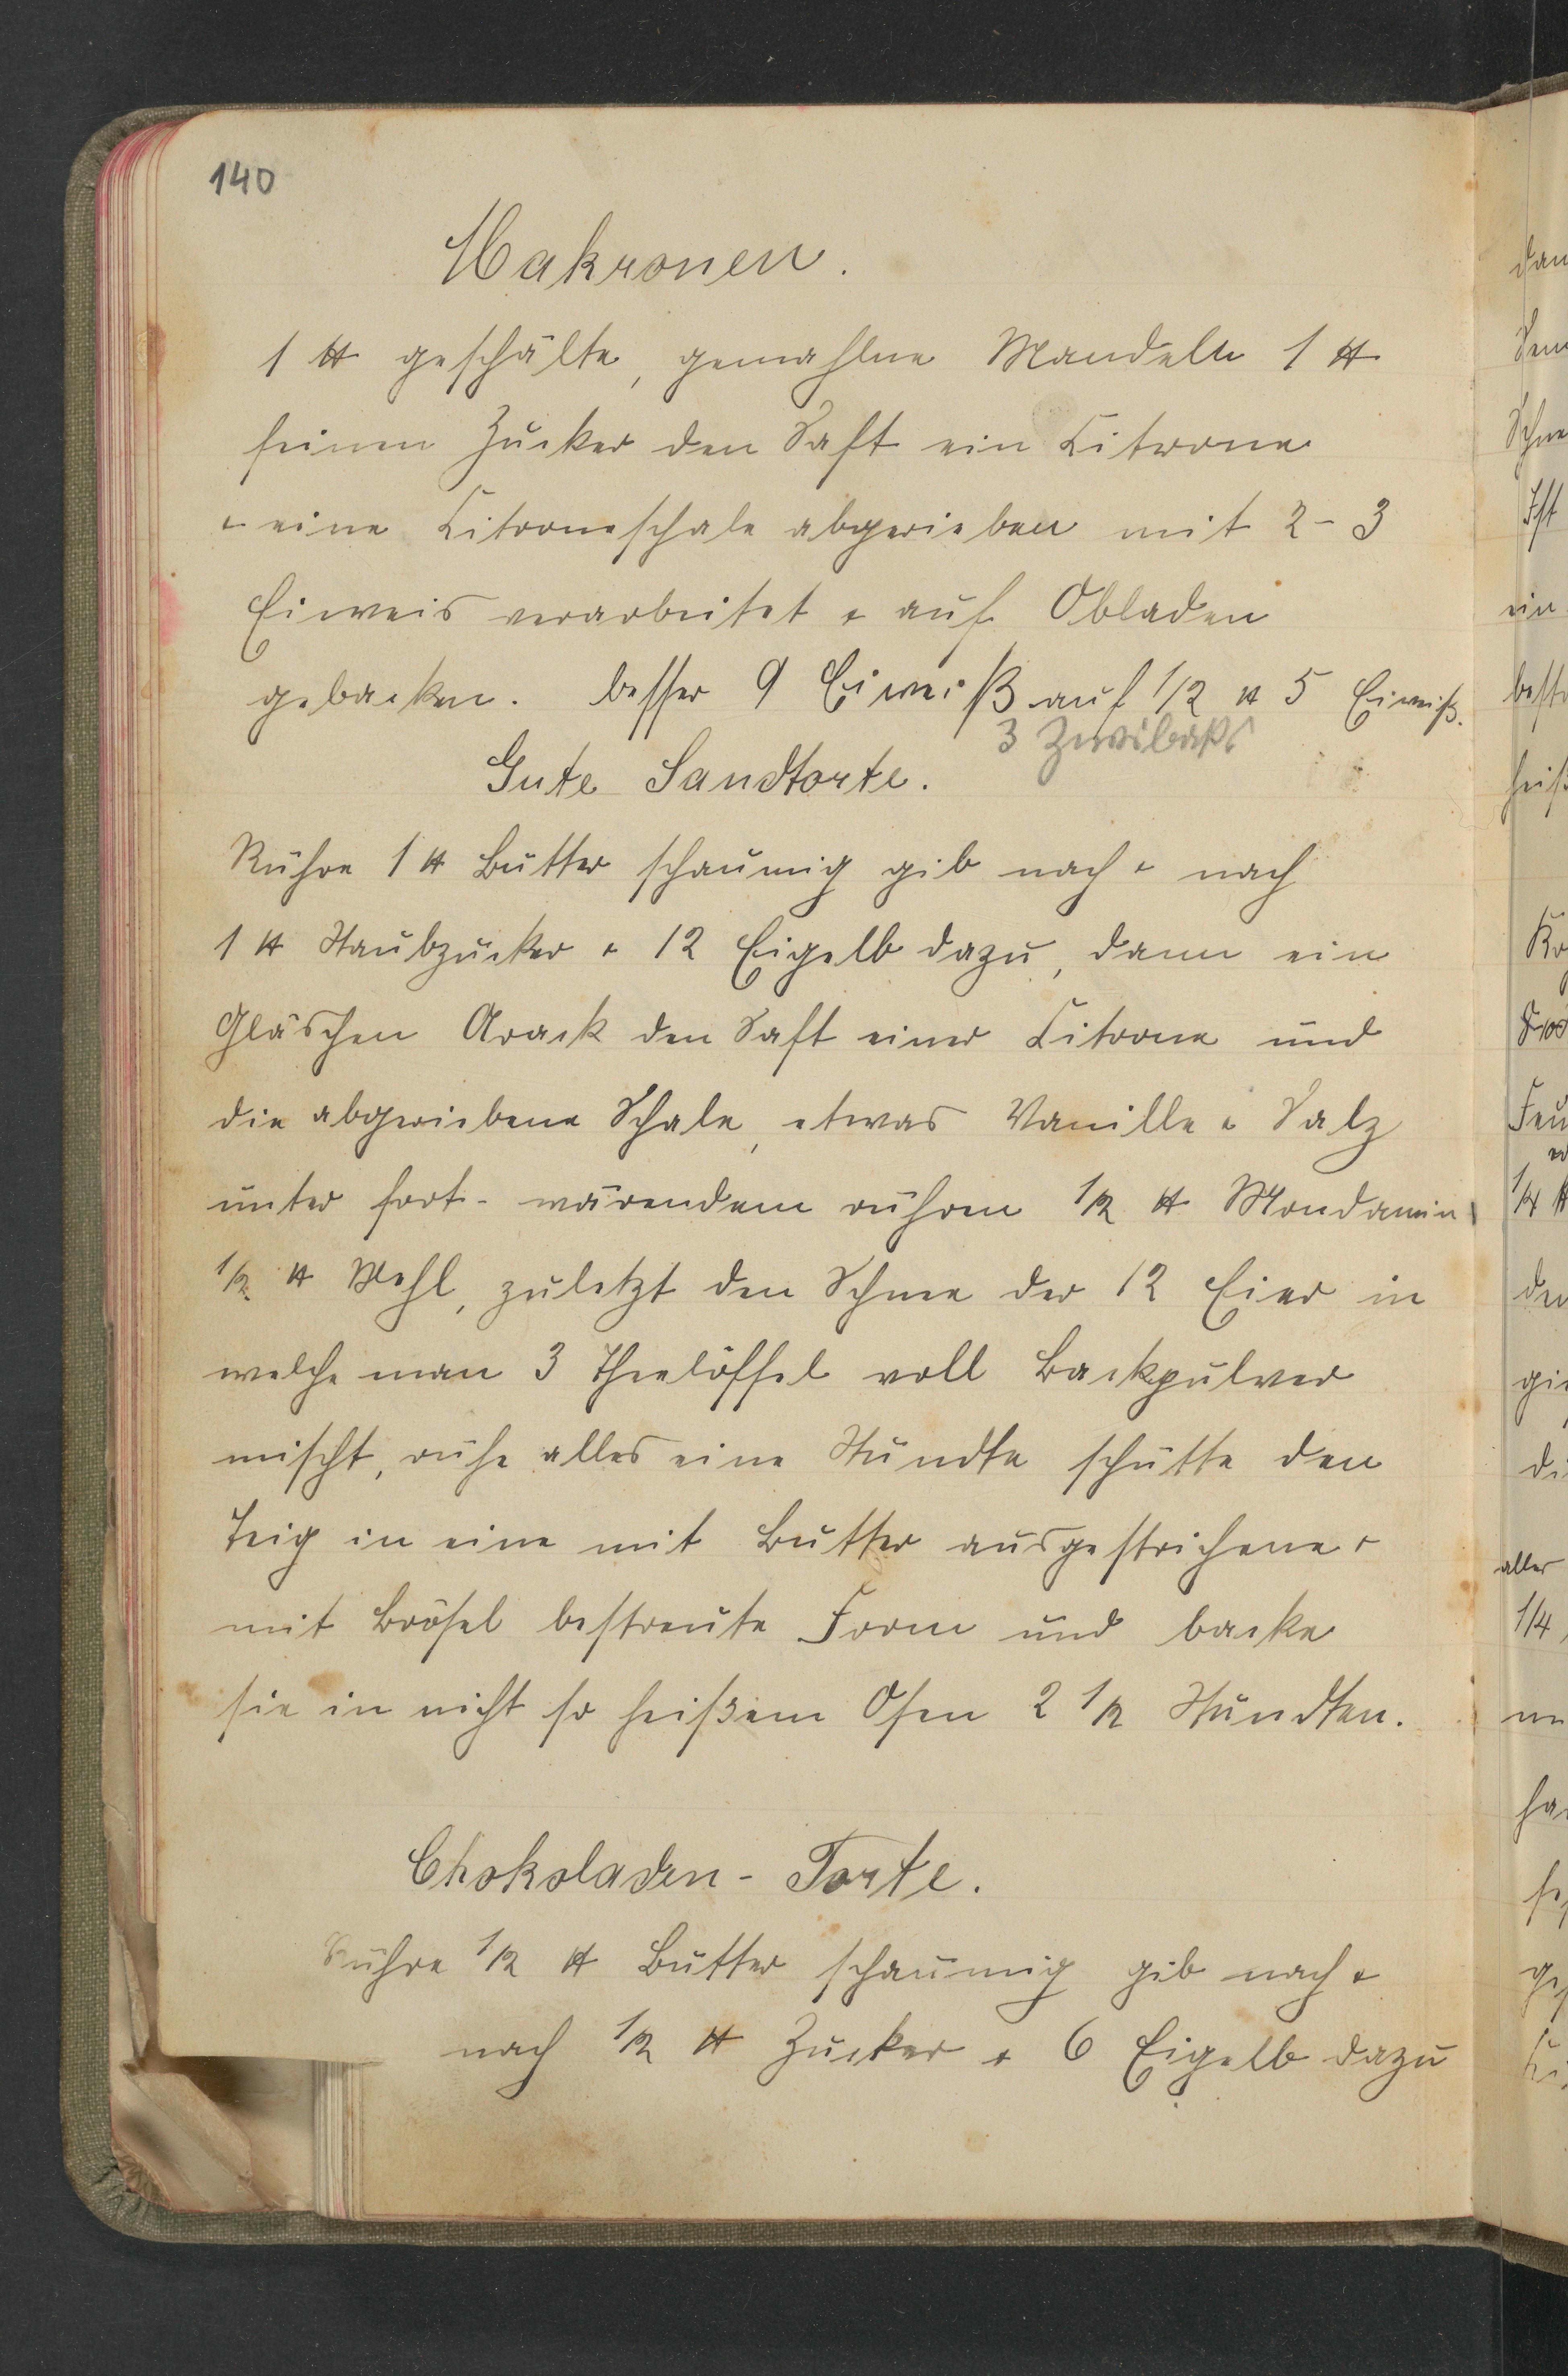 140
Makronen.
1 ℔ geschälte, gemahlne Mandeln 1 ℔
feinen Zucker den Saft ein Citrone
+ eine Citroneschale abgerieben mit 2 - 3
Eiweis verarbeitet + auf Obladen
gebacken. besser 9 Eiweiß auf 1/2 ℔ 5 Eiweiß.
3 Zwibaks
Gute Sandtorte.
Rühre 1 ℔ Butter schaumig gib nach + nach
1 ℔ Staubzucker + 12 Eigelb dazu, dann ein
Gläschen Arack den Saft einer Citrone und
die abgeriebene Schale, etwas Vanille + Salz
unter fort- wärendem rühren 1/2 ℔ Mondamin
1/2 ℔ Mehl, zuletzt den Schnee der 12 Eier in
welche man 3 Theelöffel voll Backpulver
mischt, rühe alles eine Stundte schütte den
Teig in eine mit Butter ausgestrichene +
mit Brösel bestreute Form und backe
sie in nicht so heißem Ofen 2 1/2 Stundten.
Chokoladen - Torte.
Rühre 1/2 ℔ Butter schaumig gib nach +
nach 1/2 ℔ Zucker + 6 Eigelb dazu